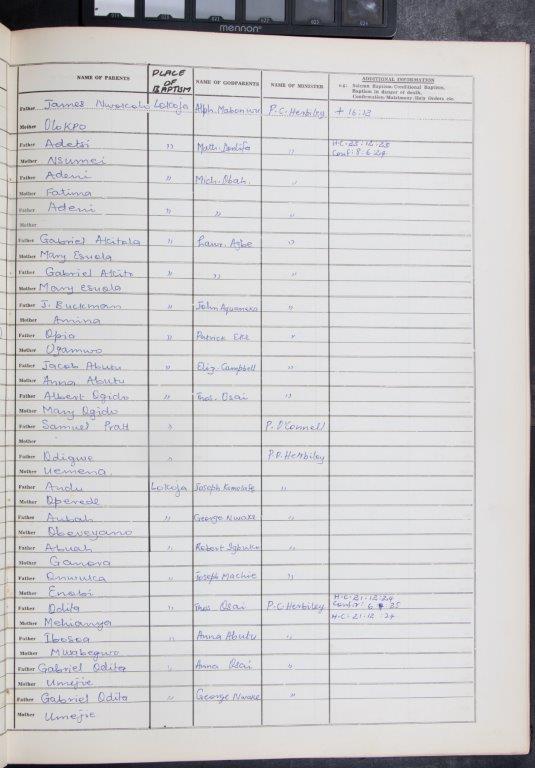 021 022 023 024
mennon
NAME OF PARENTS PLACE OF BAPTISM NAME OF GODPARENTS NAME OF MINISTER ADDITIONAL INFORMATION
e.g: Solemn Baptism/Conditional Baptism,
Baptism in danger of death,
Confirmation/Matrimony/Holy Orders etc.
Father James Lokoja Alph. P.C. Herbiley + 16:12
Mother Olokpo
Father Adetsi " Matt. " H-C-25:12:23
Mother Nsumei Conf: 8-6-24
Father Ademi " Mich. Obah. "
Mother Fatima
Father Ademi " " "
Mother
Father Gabriel Akitola " Laur. Agbe "
Mother Mary Esuola
Father Gabriel " " "
Mother Mary Esuola
Father J. Buckman " John "
Mother Amina
Father Opia " Patrick Eke "
Mother Ogamwo
Father Jacob Abutu " Eliz. Campbell "
Mother Anna Abutu
Father Albert Ogido " Thos. Osai "
Mother Mary Ogido
Father Samuel Pratt " P. O'Connell
Mother
Father Odigwe " P.C. Herbiley
Mother Uemena
Father Andu Lokoja Joseph "
Mother Operede
Father Aubah " George Nwake "
Mother Oboveyano
Father Abuah " Robert Igbuku "
Mother Ganova
Father Onwuka " Joseph Machie "
Mother Enobi
Father Odita " Thos Osai P.C. Herbiley H-C-21-12-24
Mother Mehianya H-C-21-12-24
Father Ibosoa " Anna Abutu "
Mother Mwabegwo
Father Gabriel Odita " Anna Osai "
Mother Umejie
Father Gabriel Odita " George Nwake "
Mother Umejie